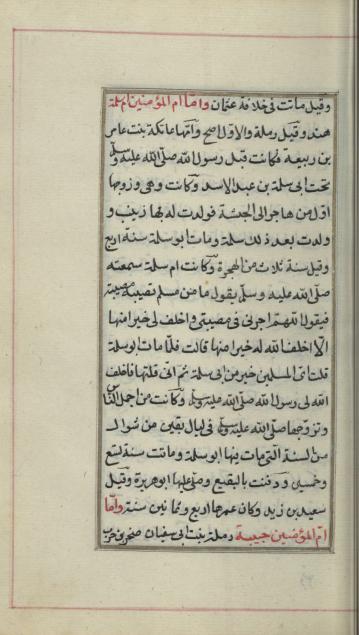 وقيل ماتت في خلافة عثمان واما ام المؤمنين ام سلة
هند وقيل رملة والاول اصح وامها عاتكة بنت عامر
بن ربيعة فكانت قبل رسول الله صلى الله عليه وسلم
تحت ابى سلة بن عبد الاسد وكانت وهى وزوجها
اول من هاجر الى الحبشة فولدت له بها زينب و
ولدت بعد ذلك سلة ومات ابو سلة سنة اربع
وقيل سنة ثلاث من الهجرة وكانت ام سلة سمعته
صلى الله عليه وسلم يقول ما من مسلم تصيبه مصيبة
فيقول اللهم اجرنى في مصيبتى واخلف لى خيرا منها
الا اخلف الله له خيرا منها قالت فلما مات ابو سلة
قلت اى المسلمين خير من ابى سلة ثم انى قلتها فاخلف
الله لى رسول الله صلى الله عليه وسلم وكانت من اجمل الناس
وتزوجها صلى الله عليه وسلم في ليال بقين من شوال
من السنة التى مات فيها ابو سلة وماتت سنة تسع
وخمسين ودفنت بالبقيع وصلى عليها ابو هريرة وقيل
سعيد بن زيد وكان عمرها اربع وثمانين سنة واما
ام المؤمنين حبيبة رملة بنت ابى سفيان صخر بن حرب